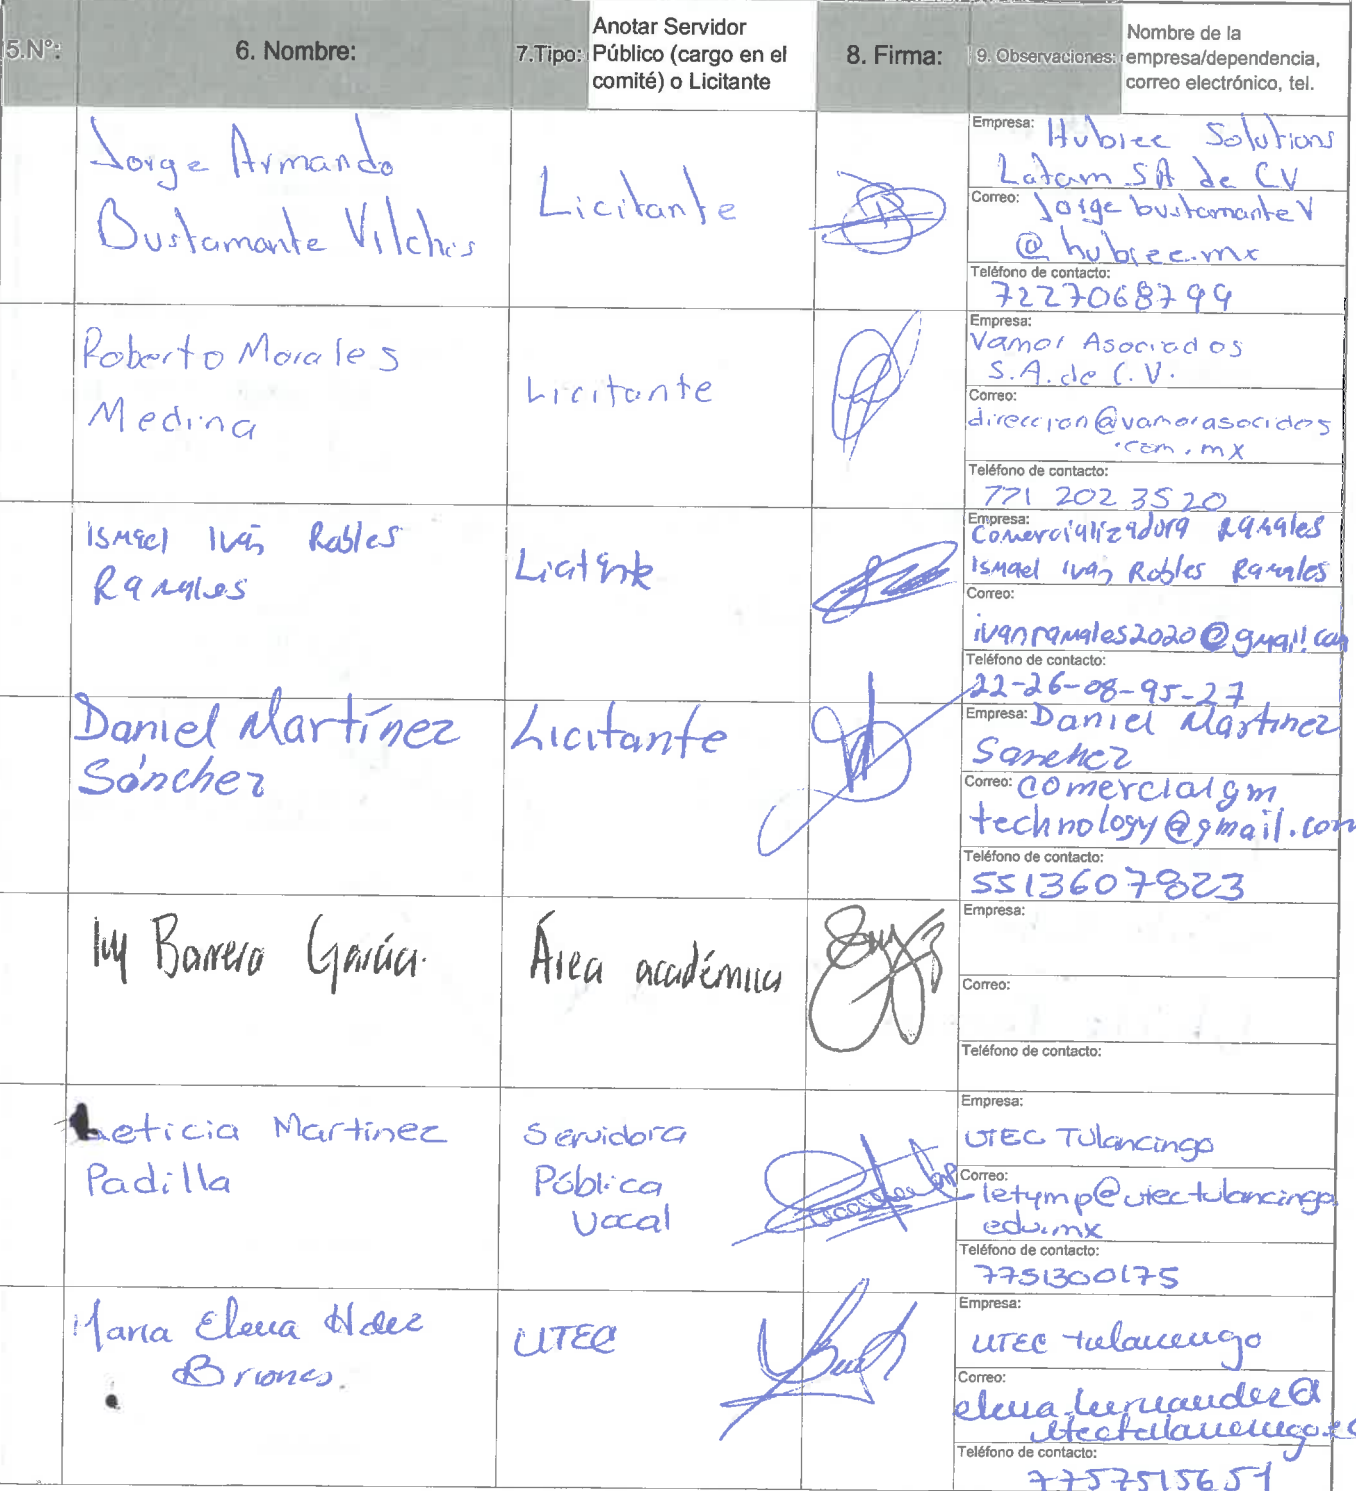 5.N°:
6. Nombre:
7.Tipo:
Anotar Servidor
Público (cargo en el
comité) o Licitante
8. Firma:
9. Observaciones:
Nombre de la
empresa/dependencia,
correo electrónico, tel.
Jorge Armando
Bustamante Vilchis
Licitante
Empresa: Hubiec Solutions
Latam SA de CV
Correo: Jorge bustamante V
@ hubiec.mx
Teléfono de contacto:
7227068799
Roberto Morales
Medina
Licitante
Empresa:
Vamor Asociados
S.A. de C.V.
Correo:
direccion@vamorasocidos
.com.mx
Teléfono de contacto:
771 202 3520
Ismael Iván Robles
Ramales
Empresa:
Comercializadora Ramales
Ismael Iván Robles Ramales
Correo:
ivanramales2020@gmail.com
Teléfono de contacto:
22-26-08-95-27
Daniel Martínez
Sánchez
Licitante
Empresa: Daniel Martinez
Sanchez
Correo: comercialgm
technology@gmail.com
Teléfono de contacto:
5513607823
Barrera García.
Área académica
Empresa:
Correo:
Teléfono de contacto:
Leticia Martinez
Padilla
Servidora
Pública
Vocal
Empresa:
UTEC Tulancingo
Correo:
letymp@utectulancingo.
edu.mx
Teléfono de contacto:
7751300175
Maria Elena Hdez
Briones.
UTEC
Empresa:
UTEC tulancingo
Correo:
elena.hernandez@
utectulancingo.ed
Teléfono de contacto:
7757515651